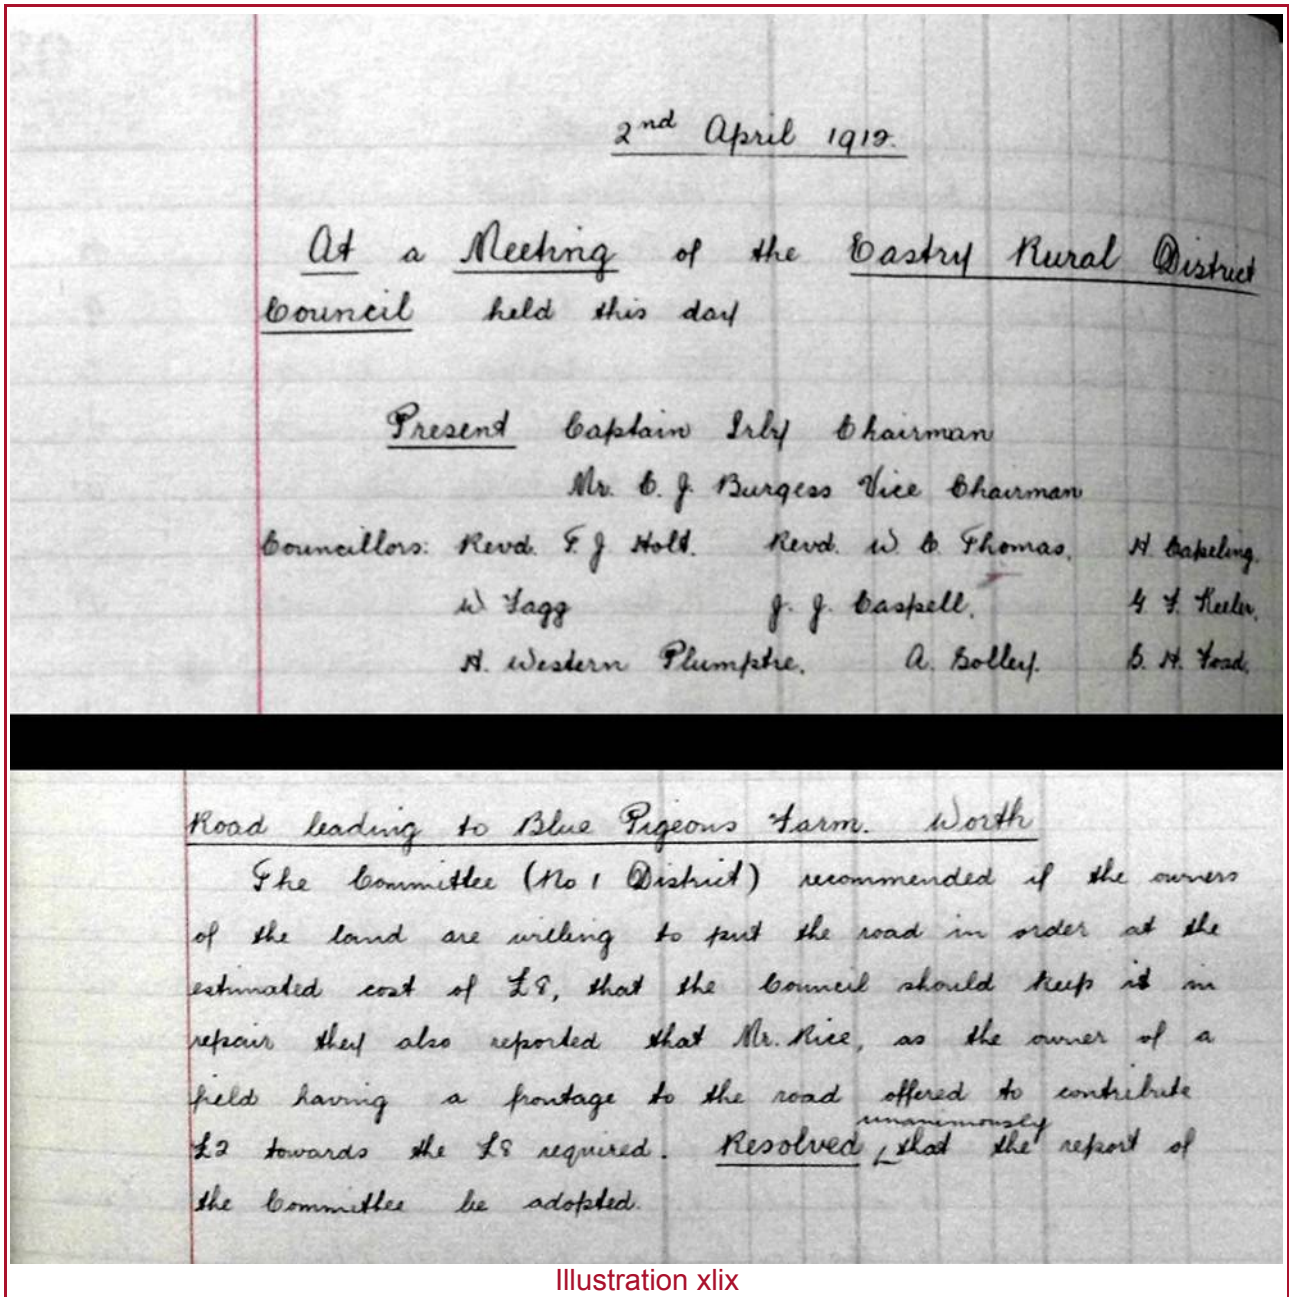 2nd April 1912.
At a Meeting of the Eastry Rural District
Council held this day
Present Captain Irby Chairman
Mr. C. J. Burgess Vice Chairman
Councillors: Revd. F. J Holt. Revd. W. C. Thomas. H. Capeling.
W Fagg J. J. Caspell. G F. Keeler.
H. Western Plumptre. A. Solley. H. Foad.
Road leading to Blue Pigeons Farm. Worth
The Committee (No 1 District) recommended if the owners
of the land are willing to put the road in order at the
estimated cost of £8, that the Council should keep it in
repair they also reported that Mr. Rice, as the owner of a
field having a frontage to the road offered to contribute
£2 towards the £8 required. Resolved unanimously that the report of
the Committee be adopted.
Illustration xlix